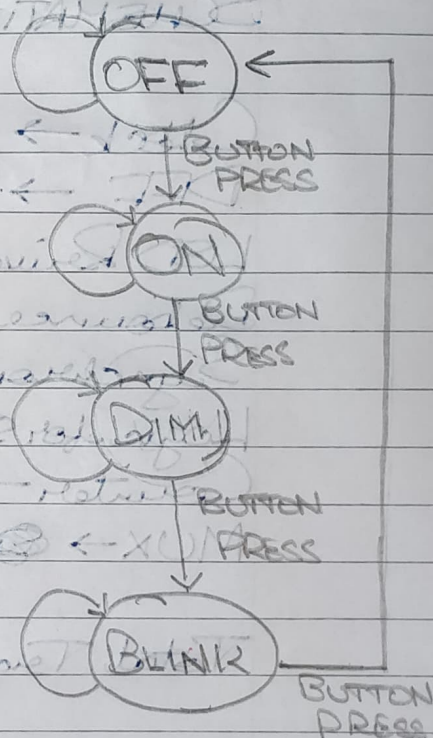 OFF
BUTTON
PRESS
ON
BUTTON
PRESS
DIM
BUTTON
PRESS
BLINK
BUTTON
PRESS